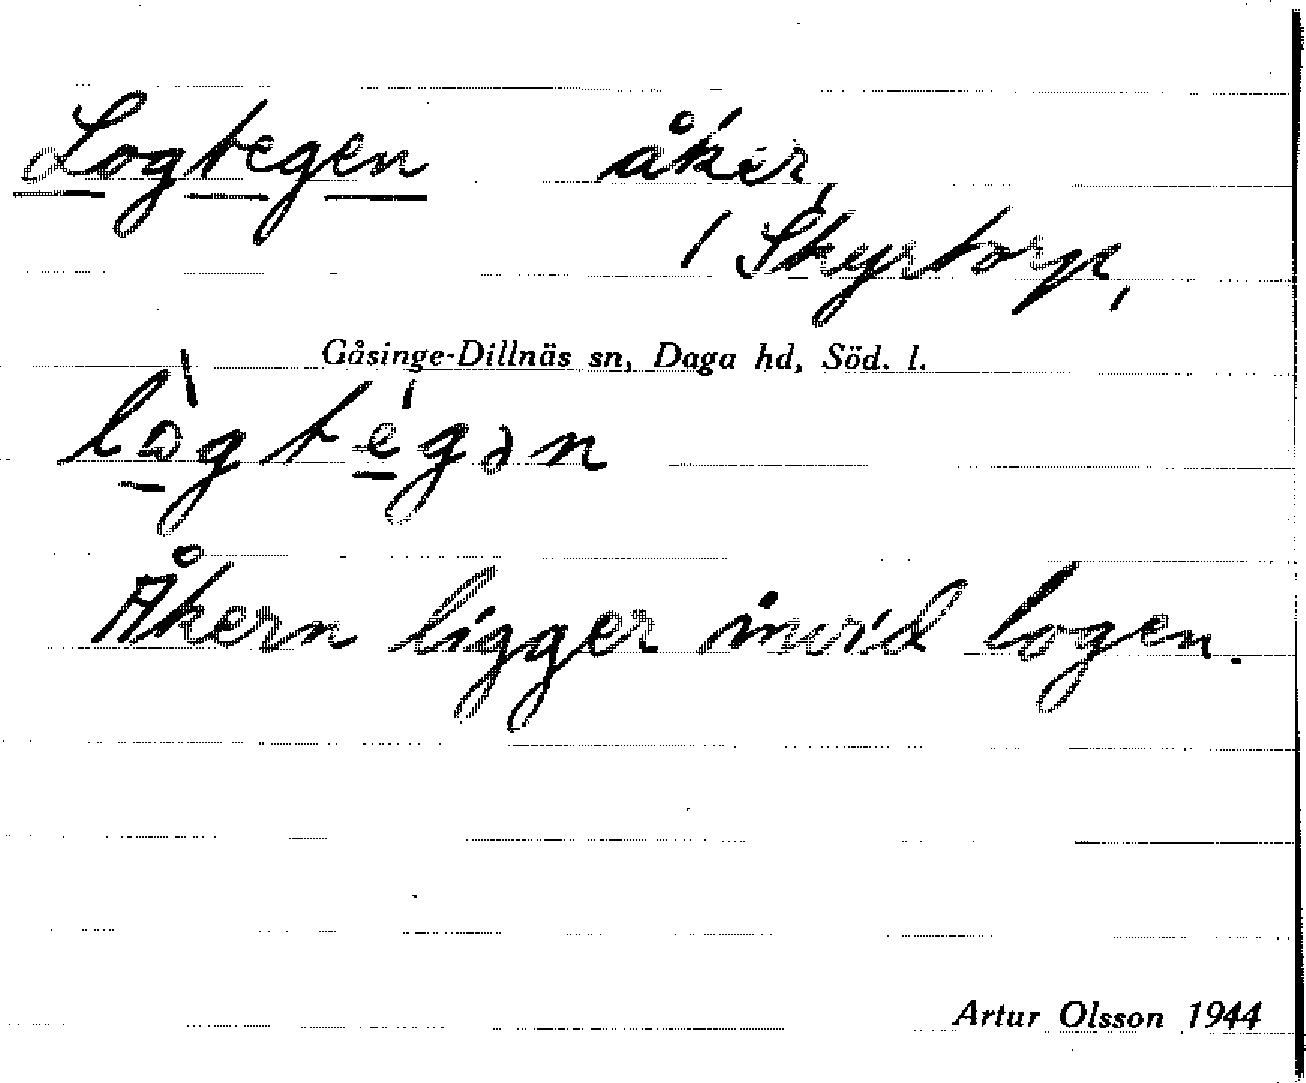 Logtegen åker,
/ Skyrtorp,
Gåsinge-Dillnäs sn, Daga hd, Söd. l.
lò̱gté̱gən
Åkern ligger invid logen.
Artur Olsson 1944